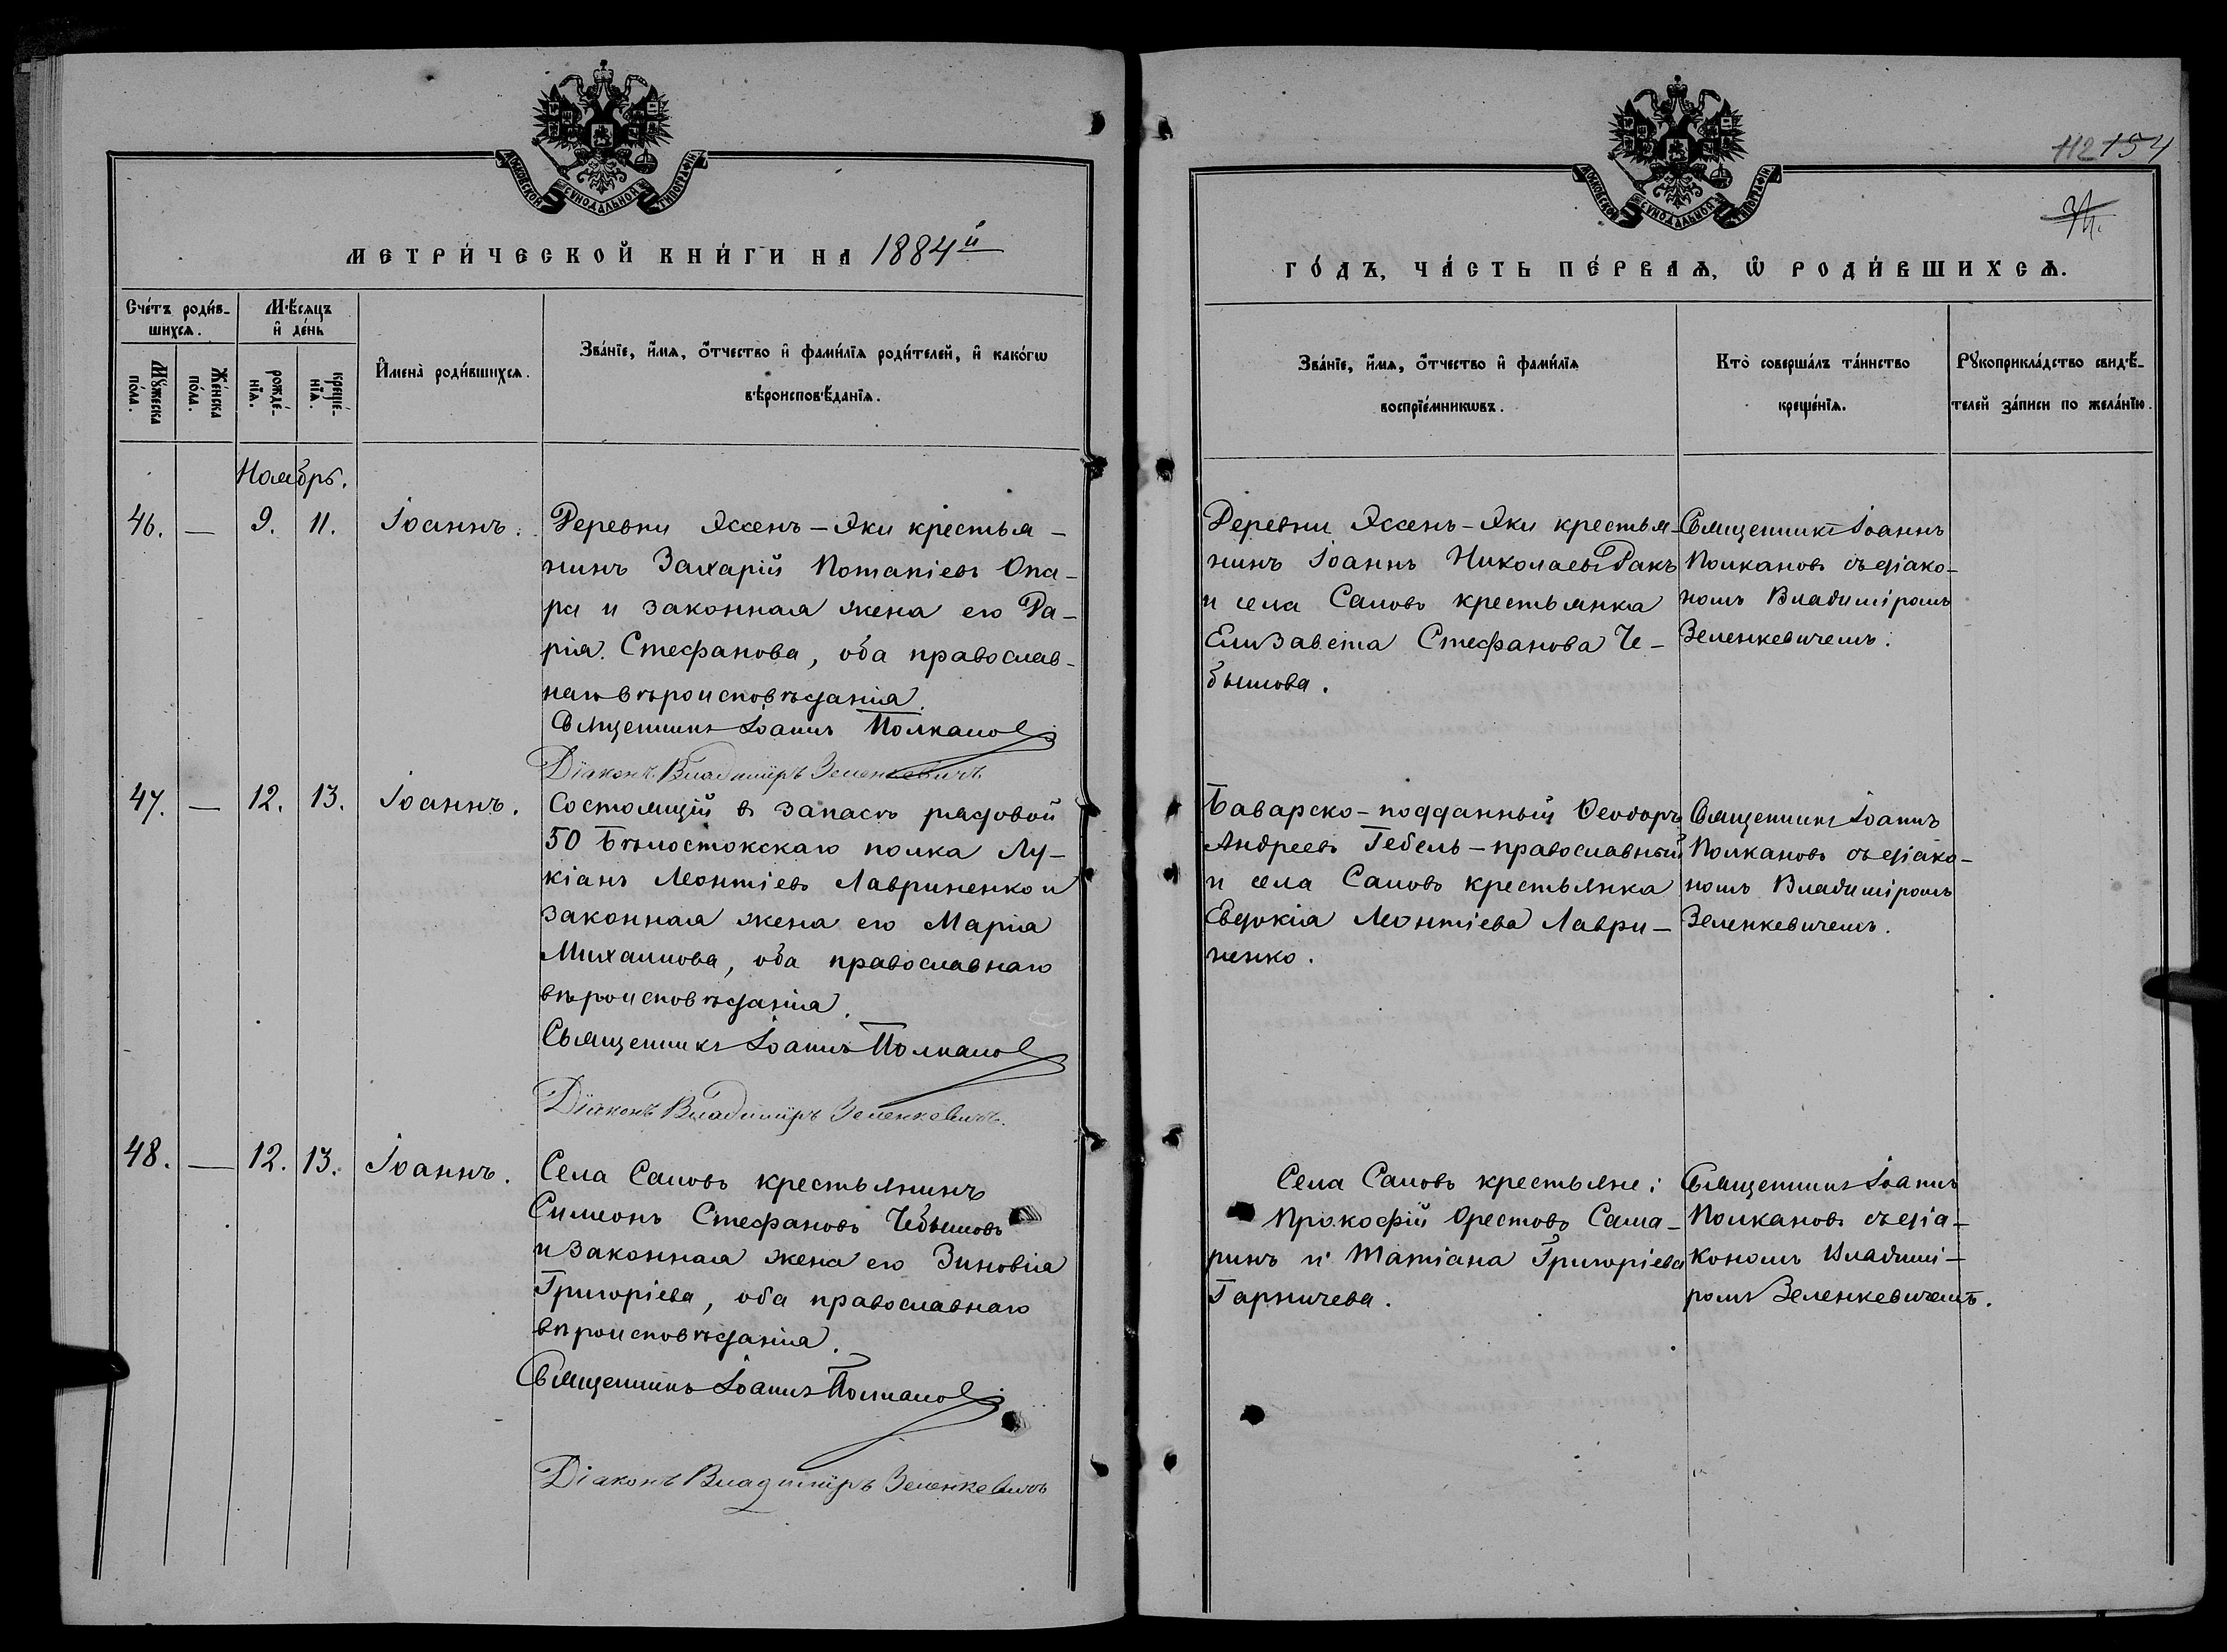 МОСКОВСКОЙ СѴНОДАЛЬНОЙ ТИПОГРАФІИ
МЕТРИ́ЧЕСКОЙ КНИ́ГИ НА 1884й
Сче́тъ роди́в-
шихсѧ.
М́ѣсяцъ
и҆ де́нь
И҆мена̀ роди́вшихсѧ.
Зва́нїе, и҆́мѧ, ѻ҆́тчество и҆ фами́лїѧ роди́телей, и҆ како́гѡ
вѣроисповѣ́данїѧ.
Мꙋ́жеска
по́ла.
Же́нска
по́ла.
рожде́-
нїѧ.
креще́-
нїѧ.
Ноябрь.
46. — 9. 11. Іоаннъ.
Деревни Яссенъ-Яки крестья-
нинъ Захарій Потапіевъ Опа-
ра и законная жена его Да-
рія Стефанова, оба православ-
наго вѣроисповѣданія.
Священникъ Іоаннъ Полкановъ
Діаконъ Владиміръ Зеленкевичъ
47. — 12. 13. Іоаннъ.
Состоящій въ запасѣ рядовой
50 Бѣлостокскаго полка Лу-
кіанъ Леонтіевъ Лавриненко и
законная жена его Марія
Михаилова, оба православнаго
вѣроисповѣданія.
Священникъ Іоаннъ Полкановъ
Діаконъ Владиміръ Зеленкевичъ.
48. — 12. 13. Іоаннъ.
Села Саловъ крестьянинъ
Симеонъ Стефановъ Чебышовъ
и законная жена его Зиновія
Григоріева, оба православнаго
вѣроисповѣданія.
Священникъ Іоаннъ Полкановъ
Діаконъ Владиміръ Зеленкевичъ
112 154
МОСКОВСКОЙ СѴНОДАЛЬНОЙ ТИПОГРАФІИ
ГО́ДЪ, ЧА́СТЬ ПЕ́РВАѦ, Ѡ҆ РОДИ́ВШИХСѦ.
Зва́нїе, и҆́мѧ, ѻ҆́тчество и҆ фами́лїѧ
воспрїе́мникѡвъ.
Кто̀ соверша́лъ та́инство
креще́нїѧ.
Рꙋкоприкла́дство свидѣ́-
телей за́писи по жела́нїю.
Деревни Яссенъ-Яки крестья-
нинъ Іоаннъ Николаевъ Ракъ
и села Саловъ крестьянка
Елизавета Стефанова Че-
бышова.
Священникъ Іоаннъ
Полкановъ съ діако-
номъ Владиміромъ
Зеленкевичемъ.
Баварско-подданный Ѳеодоръ
Андреевъ Гебель-православный
и села Саловъ крестьянка
Евдокія Леонтіева Лаври-
ненко.
Священникъ Іоаннъ
Полкановъ съ діако-
номъ Владиміромъ
Зеленкевичемъ.
Села Саловъ крестьяне:
Прокофій Орестовъ Сама-
ринъ и Татіана Григоріева
Гарпичева.
Священникъ Іоаннъ
Полкановъ съ діа-
кономъ Владимі-
ромъ Зеленкевичемъ.